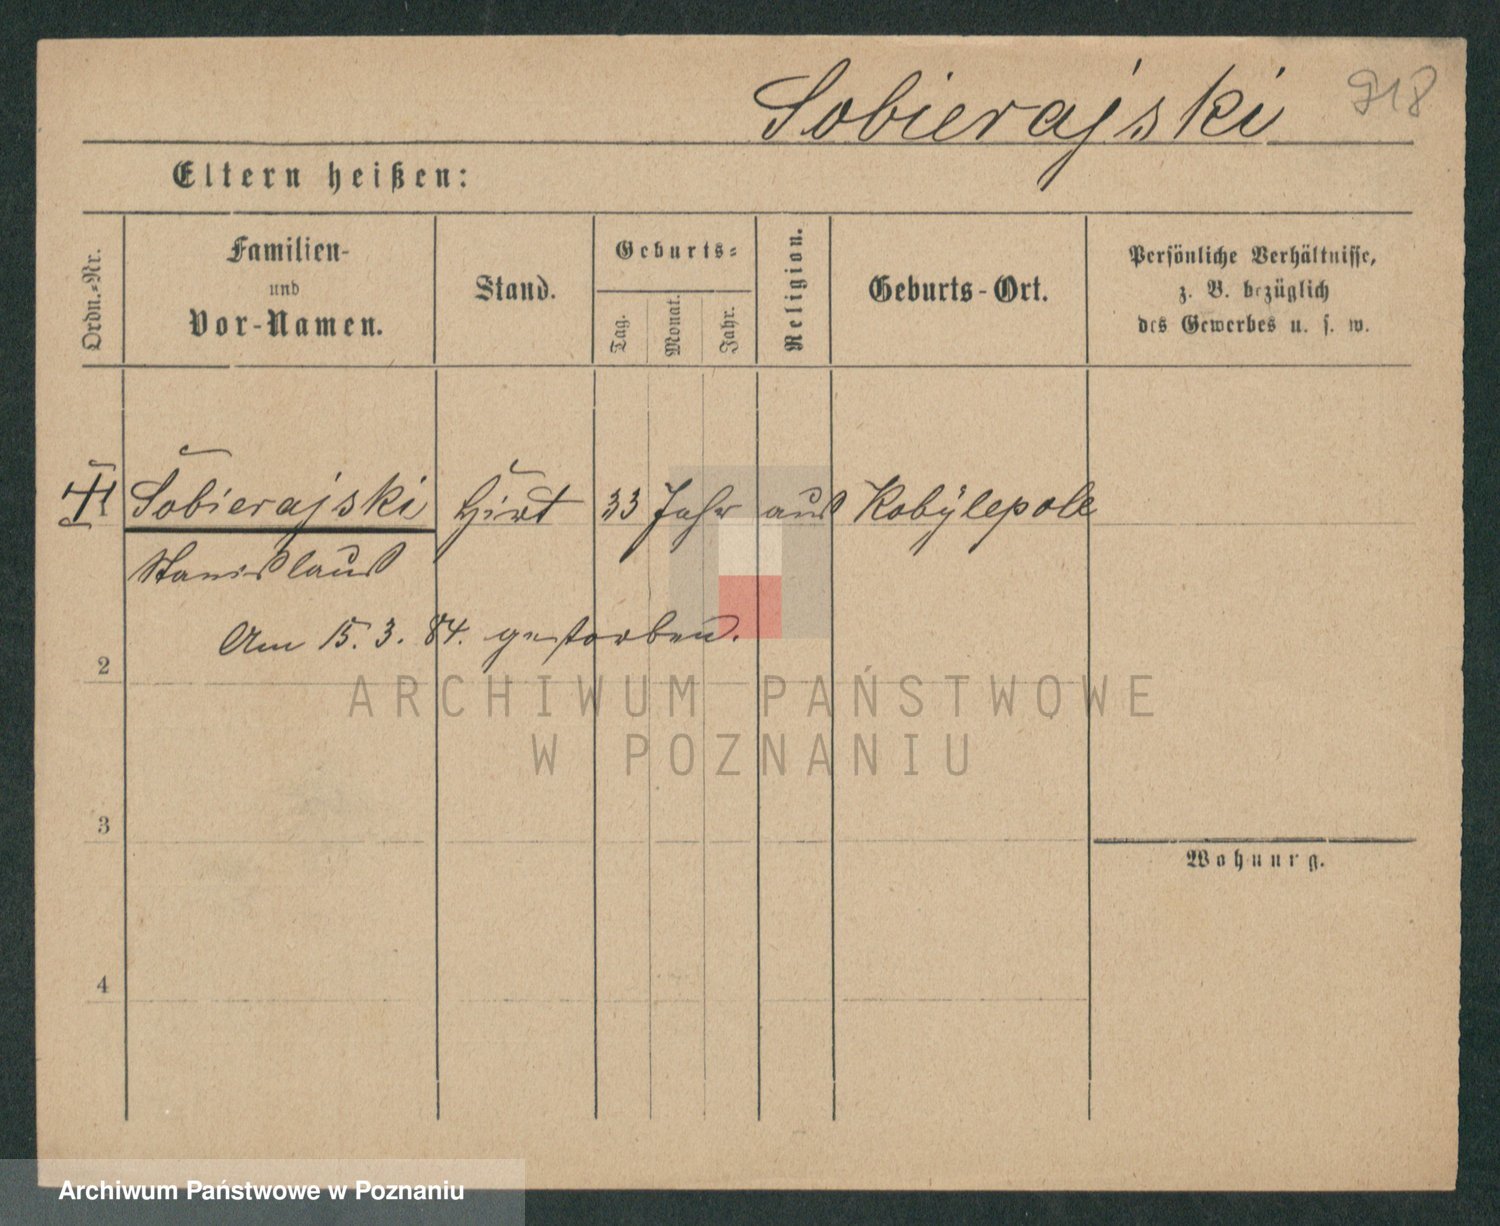 Sobierajski 918
Eltern heißen:
Ordn.-Nr.
Familien-
und
Vor-Namen.
Stand.
Geburts-
Tag.
Monat.
Jahr.
Religion.
Geburts-Ort.
Persönliche Verhältnisse,
z. B. bezüglich
des Gewerbes u. s. w.
Sobierajski Hirt 33 Jahr aus Kobylepole
Stanislaus
Am 15. 3. 84. gestorben.
2
ARCHIWUM PAŃSTWOWE
W POZNANIU
3
Wohnung.
4
Archiwum Państwowe w Poznaniu